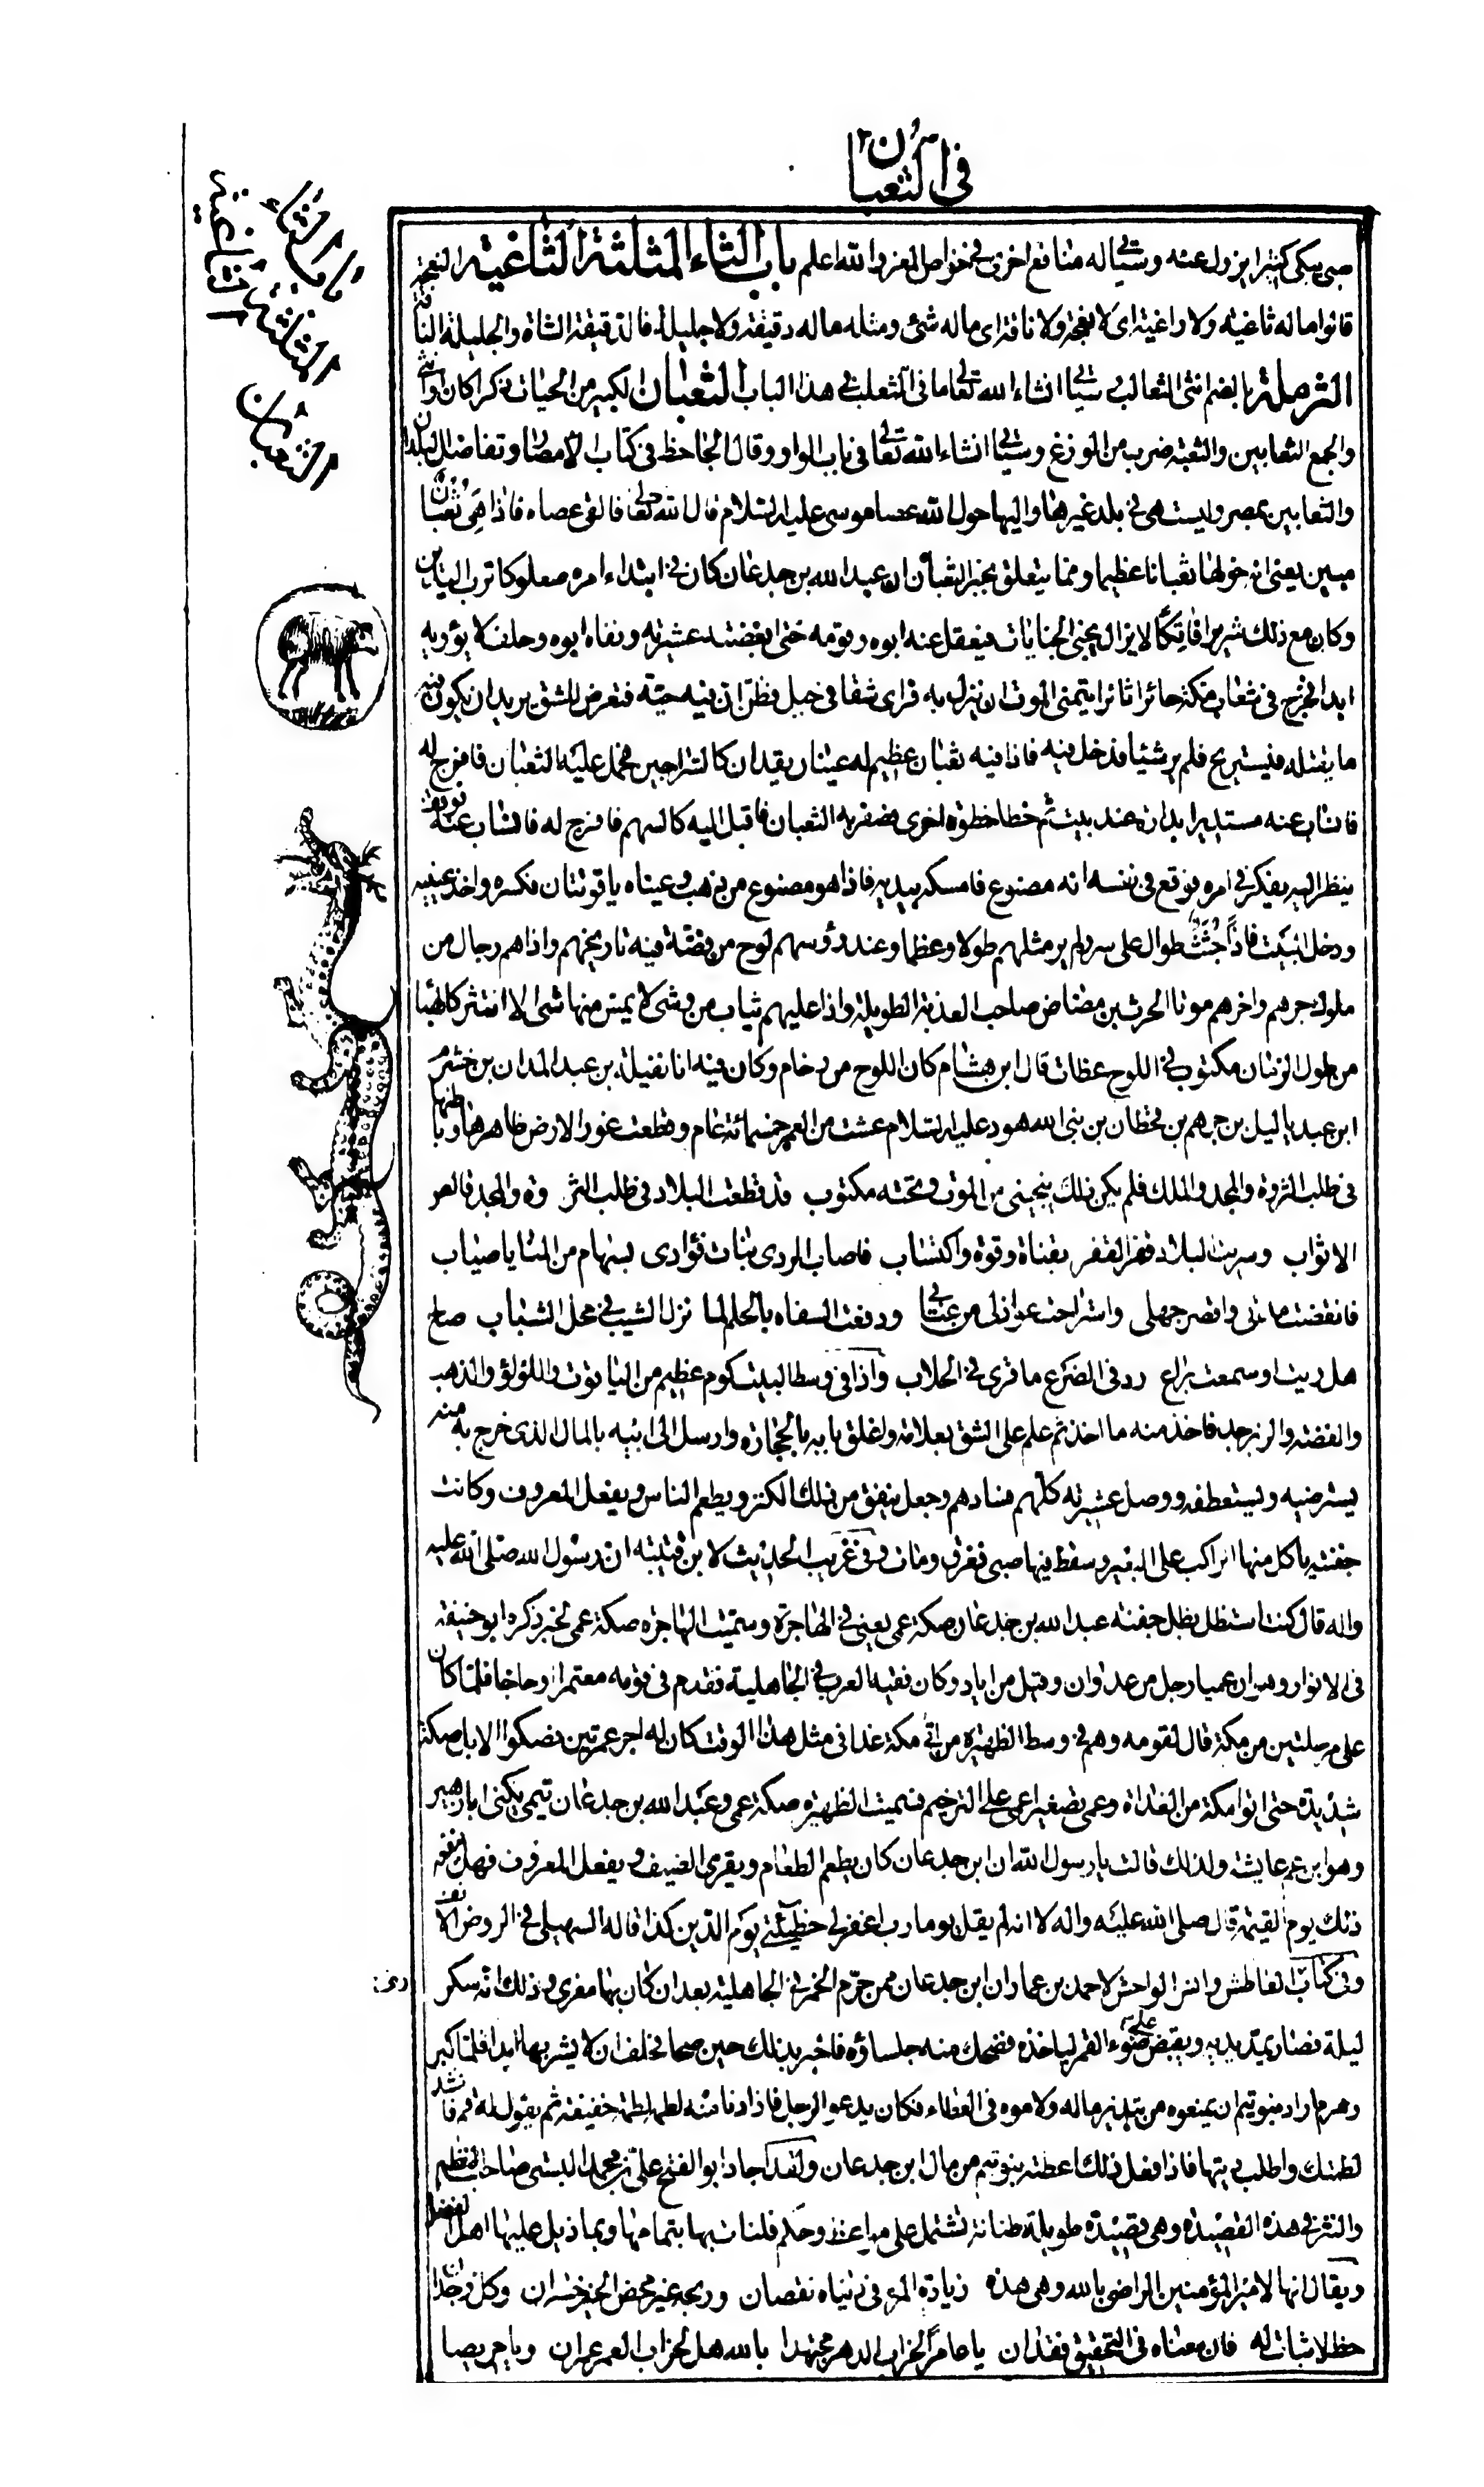 في الثعبان
باب الثاء
المثلثة الثاغية
الثعبان
صبى يبكى كثيرا يزول عنه وسيأتى له منافع اخرى فى خواص المعز والله اعلم باب الثاء المثلثة الثاغية النعجة
قالوا ماله ثاغية ولا راغية اى لا نعجة ولا ناقة اى ماله شئ ومثله ماله دقيقة ولا جليلة فالدقيقة الشاة والجليلة الناقة
الثرملة بالضم انثى الثعالب سيأتى انشاء الله تعالى ما فى الثعلب فى هذا الباب الثعبان الكبير من الحيات ذكرا كان او انثى
والجمع الثعابين والثعبة ضرب من الوزغ وسيأتى انشاء الله تعالى فى باب الواو وقال الجاحظ فى كتاب الامصار وتفاضل البلدان
والثعابين بمصر وليست هى فى بلد غيرها واليها حول الله عصا موسى عليه السلام قال الله تعالى فالقى عصاه فاذا هى ثعبان
مبين يعنى انه حولها ثعبانا عظيما ومما يتعلق بخبر الثعبان ان عبد الله بن جدعان كان فى ابتداء امره صعلوكا ترب اليدين
وكان مع ذلك شريرا فاتكا لا يزال يجنى الجنايات فيعقل عنه ابوه وقومه حتى ابغضته عشيرته ونفاه ابوه وحلف لا يؤويه
ابدا فخرج فى شعاب مكة حائرا ثائرا يتمنى الموت ان ينزل به فراى شقا فى جبل فظن ان فيه حية فتعرض للشق يريد ان يكون فيه
ما يقتله فيستريح فلم ير شيئا فدخل فيه فاذا فيه ثعبان عظيم له عينان يقدان كالسراجين فحمل عليه الثعبان فافرج له
فانساب عنه مستديرا بدارة عند بيت ثم خطا خطوة اخرى فصفر به الثعبان فاقبل اليه كالسهم فافرج له فانساب عنه فوقف
ينظر اليه يفكر فى امره فوقع فى نفسه انه مصنوع فامسكه بيديه فاذا هو مصنوع من ذهب وعيناه ياقوتتان فكسره واخذ عينيه
ودخل البيت فاذا جثث طوال على سرر لم ير مثلهم طولا وعظما وعند رؤسهم لوح من فضة فيه تاريخهم واذا هم رجال من
ملوك جرهم واخرهم موتا الحرث بن مضاض صاحب العذبة الطويلة واذا عليهم ثياب من وشى لا يمس منها شى الا انتثر كالهبا
من طول الزمان مكتوب فى اللوح عظات قال ابن هشام كان اللوح من رخام وكان فيه انا نفيلة بن عبد المدان بن خشرم
ابن عبد ياليل بن جرهم بن قحطان بن نبى الله هود عليه السلام عشت من العمر خمسمائة عام وقطعت غور الارض ظاهرها وباطنها
فى طلب الثروة والمجد والملك فلم يكن ذلك ينجينى من الموت وتحته مكتوب قد قطعت البلاد فى طلب الثر وة والمجد قالص
الاثواب وسريت البلاد قفرا لقفر بقناة وقوة واكتساب فاصاب الردى بنات فؤادى بسهام من المنايا صياب
فانقضت مدتى واقصر جهلى واستراحت عواذلى من عتابى ودفعت السفاه بالحلم لما نزل الشيب فى محل الشباب صاح
هل ريت او سمعت براع رد فى الضرع ما قرى فى الحلاب واذا فى وسط البيت كوم عظيم من الياقوت واللؤلؤ والذهب
والفضة والزبرجد فاخذ منه ما اخذ ثم علم على الشق بعلامة واغلق بابه بالحجارة وارسل الى ابيه بالمال الذى خرج به منه
يسترضيه ويستعطفه ووصل عشيرته كلهم فسادهم وجعل ينفق من ذلك الكنز ويطعم الناس ويفعل المعروف وكانت
جفنته ياكل منها الراكب على البعير وسقط فيها صبى فغرق ومات وفى غريب الحديث لابن قتيبة ان رسول الله صلى الله عليه
واله قال كنت استظل بظل جفنة عبد الله بن جدعان صكة عمى يعنى فى الهاجرة وسميت الهاجرة صكة عمى لخبر ذكره ابو حنيفة
فى الانوار وهو ان عميا رجل من عدوان وقيل من اياد وكان فقيه العرب فى الجاهلية فقدم فى قومه معتمرا وحاجا فلما كان
على مرحلتين من مكة قال لقومه وهم فى وسط الظهيرة من اتى مكة غدا فى مثل هذا الوقت كان له اجر عمرتين فصكوا الابل صكة
شديدة حتى اتوا مكة من الغداة وعمى تصغير اعمى على الترخيم فسميت الظهيرة صكة عمى وعبد الله بن جدعان تيمى يكنى ابا زهير
وهو ابن عم عايشة ولذلك قالت يا رسول الله ان ابن جدعان كان يطعم الطعام ويقرى الضيف ويفعل المعروف فهل ينفعه
ذلك يوم القيمة قال صلى الله عليه واله لا انه لم يقل يوما رب اغفر لى خطيئتى يوم الدين كذا قاله السهيلى فى الروض الانف
وفى كتاب العاطش وانس الواحش لاحمد بن عمار ان ابن جدعان ممن حرم الخمر فى الجاهلية بعد ان كان بها مغرى وذلك انه سكر
ليلة فصار يمد يديه ويقبض على ضوء القمر لياخذه فضحك منه جلساؤه فاخبر بذلك حين صحا فحلف ان لا يشربها ابدا فلما كبر
وهرم اراد بنو تيم ان يمنعوه من تبذير ماله ولاموه فى العطاء فكان يدعو الرجل فاذا دنا منه لطمه لطمة خفيفة ثم يقول له قم فانشد
لطمتك واطلب ديتها فاذا فعل ذلك اعطته بنو تيم من مال ابن جدعان ولقد اجاد ابو الفتح على بن محمد البستى صاحب النظم
والنثر فى هذه القصيدة وهى قصيدة طويلة طنانة تشتمل على مواعظ وحكم فلنات بها بتمامها وبما ذيل عليها اهل الفضل
ويقال انها لامير المؤمنين الراضى بالله وهى هذه زيادة المرء فى دنياه نقصان وربحه غير محض الخير خسران وكل وجدان
حظ لا ثبات له فان معناه فى التحقيق فقدان يا عامرا لخراب الدهر مجتهدا بالله هل لخراب العمر عمران ويا حريصا